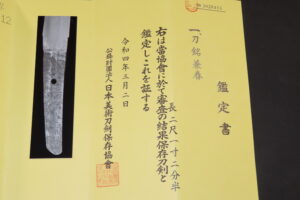 鑑定書
一、刀 銘 兼春
長 二尺一寸二分半
右は當協會に於て審査の結果保存刀剣と
鑑定しこれを証する
令和四年三月二日
公益財団法人 日本美術刀剣保存協會